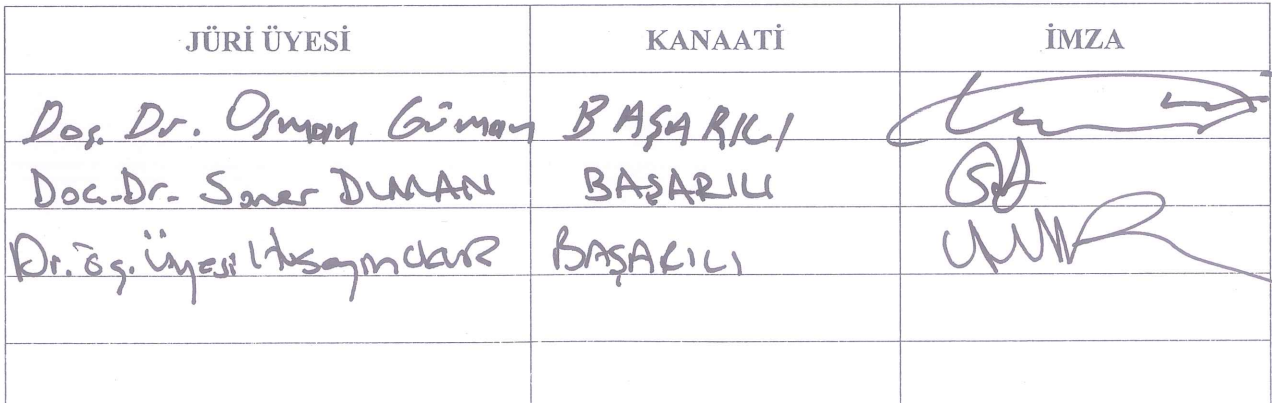 JÜRİ ÜYESİ KANAATİ İMZA
Doç. Dr. Osman Güman BAŞARILI
Doç. Dr. Soner DUMAN BAŞARILI
Dr. Öğ. Üyesi BAŞARILI